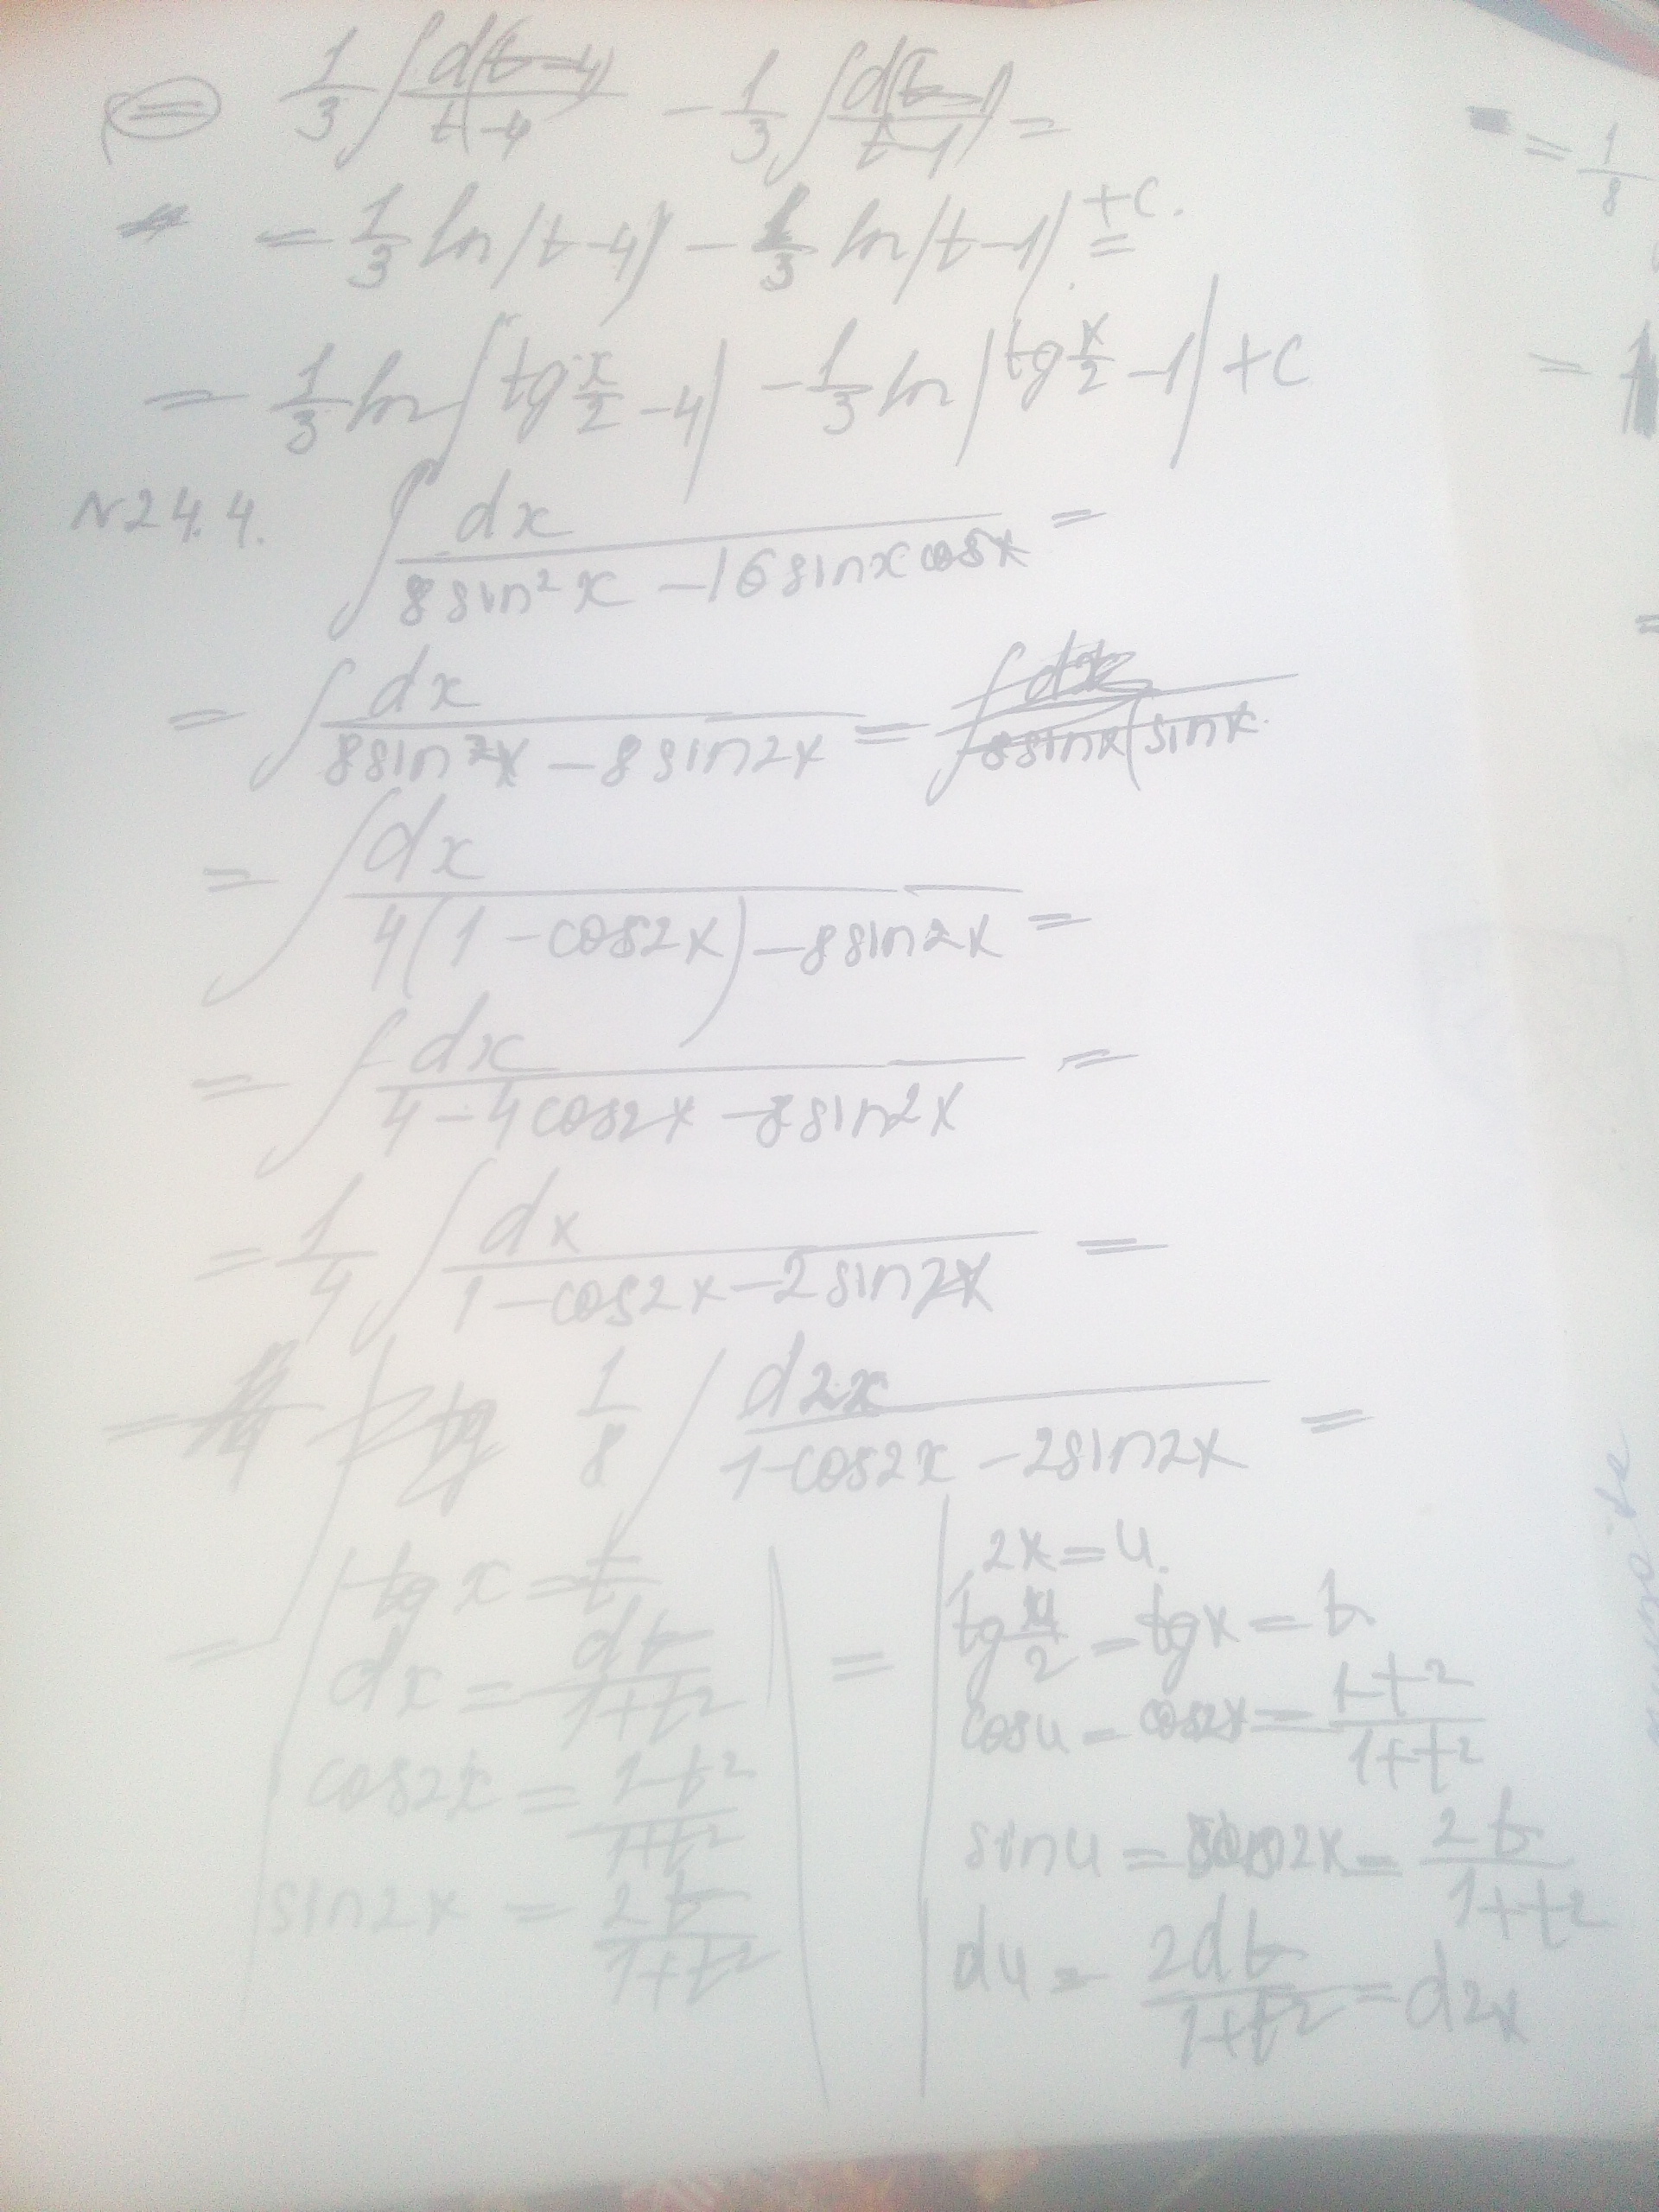 = 1/3 ∫ d(t-4)/(t-4) - 1/3 ∫ d(t-1)/(t-1) =
= 1/3 ln|t-4| - 1/3 ln|t-1| + C. =
= 1/3 ln|tg x/2 - 4| - 1/3 ln|tg x/2 - 1| + C
N24.4. ∫ dx/(8sin²x - 16sinxcosx) =
= ∫ dx/(8sin²x - 8sin2x) =
= ∫ dx/(4(1-cos2x) - 8sin2x) =
= ∫ dx/(4 - 4cos2x - 8sin2x) =
= 1/4 ∫ dx/(1 - cos2x - 2sin2x) =
1/8 ∫ d2x/(1-cos2x - 2sin2x) =
= | tg x = t
dx = dt/(1+t²)
cos2x = (1-t²)/(1+t²)
sin2x = 2t/(1+t²) |
= | 2x = u.
tg u/2 = tgx = t
cosu = cos2x = (1-t²)/(1+t²)
sinu = 2x = 2t/(1+t²)
du = 2dt/(1+t²) = d2x
= 1/8
=
=